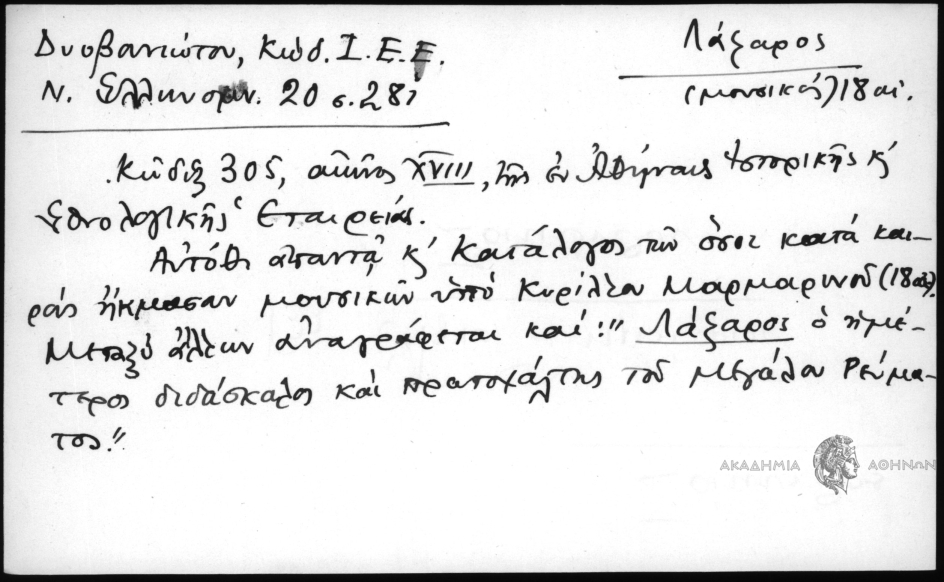 Δυοβουνιώτου, Κώδ. Ι.Ε.Ε.
Ν. Ελληνομν. 20 σ. 281
Λάζαρος
(μουσικός) 18 αι.
Κώδιξ 305, αἰῶνος XVIII, τῆς ἐν Ἀθήναις Ἱστορικῆς κ'
Ἐθνολογικῆς Ἑταιρείας.
Αὐτόθι ἀπαντᾷ κ' Κατάλογος τῶν ὅσοι κατά και-
ρούς ἤκμασαν μουσικῶν ὑπό Κυρίλλου Μαρμαρινοῦ (18 αἰ).
Μεταξύ ἄλλων ἀναγράφεται καί: "Λάζαρος ὁ ἡμέ-
τερος διδάσκαλος καί πρωτοψάλτης τοῦ Μεγάλου Ρεύμα-
τος."
ΑΚΑΔΗΜΙΑ ΑΘΗΝΩΝ